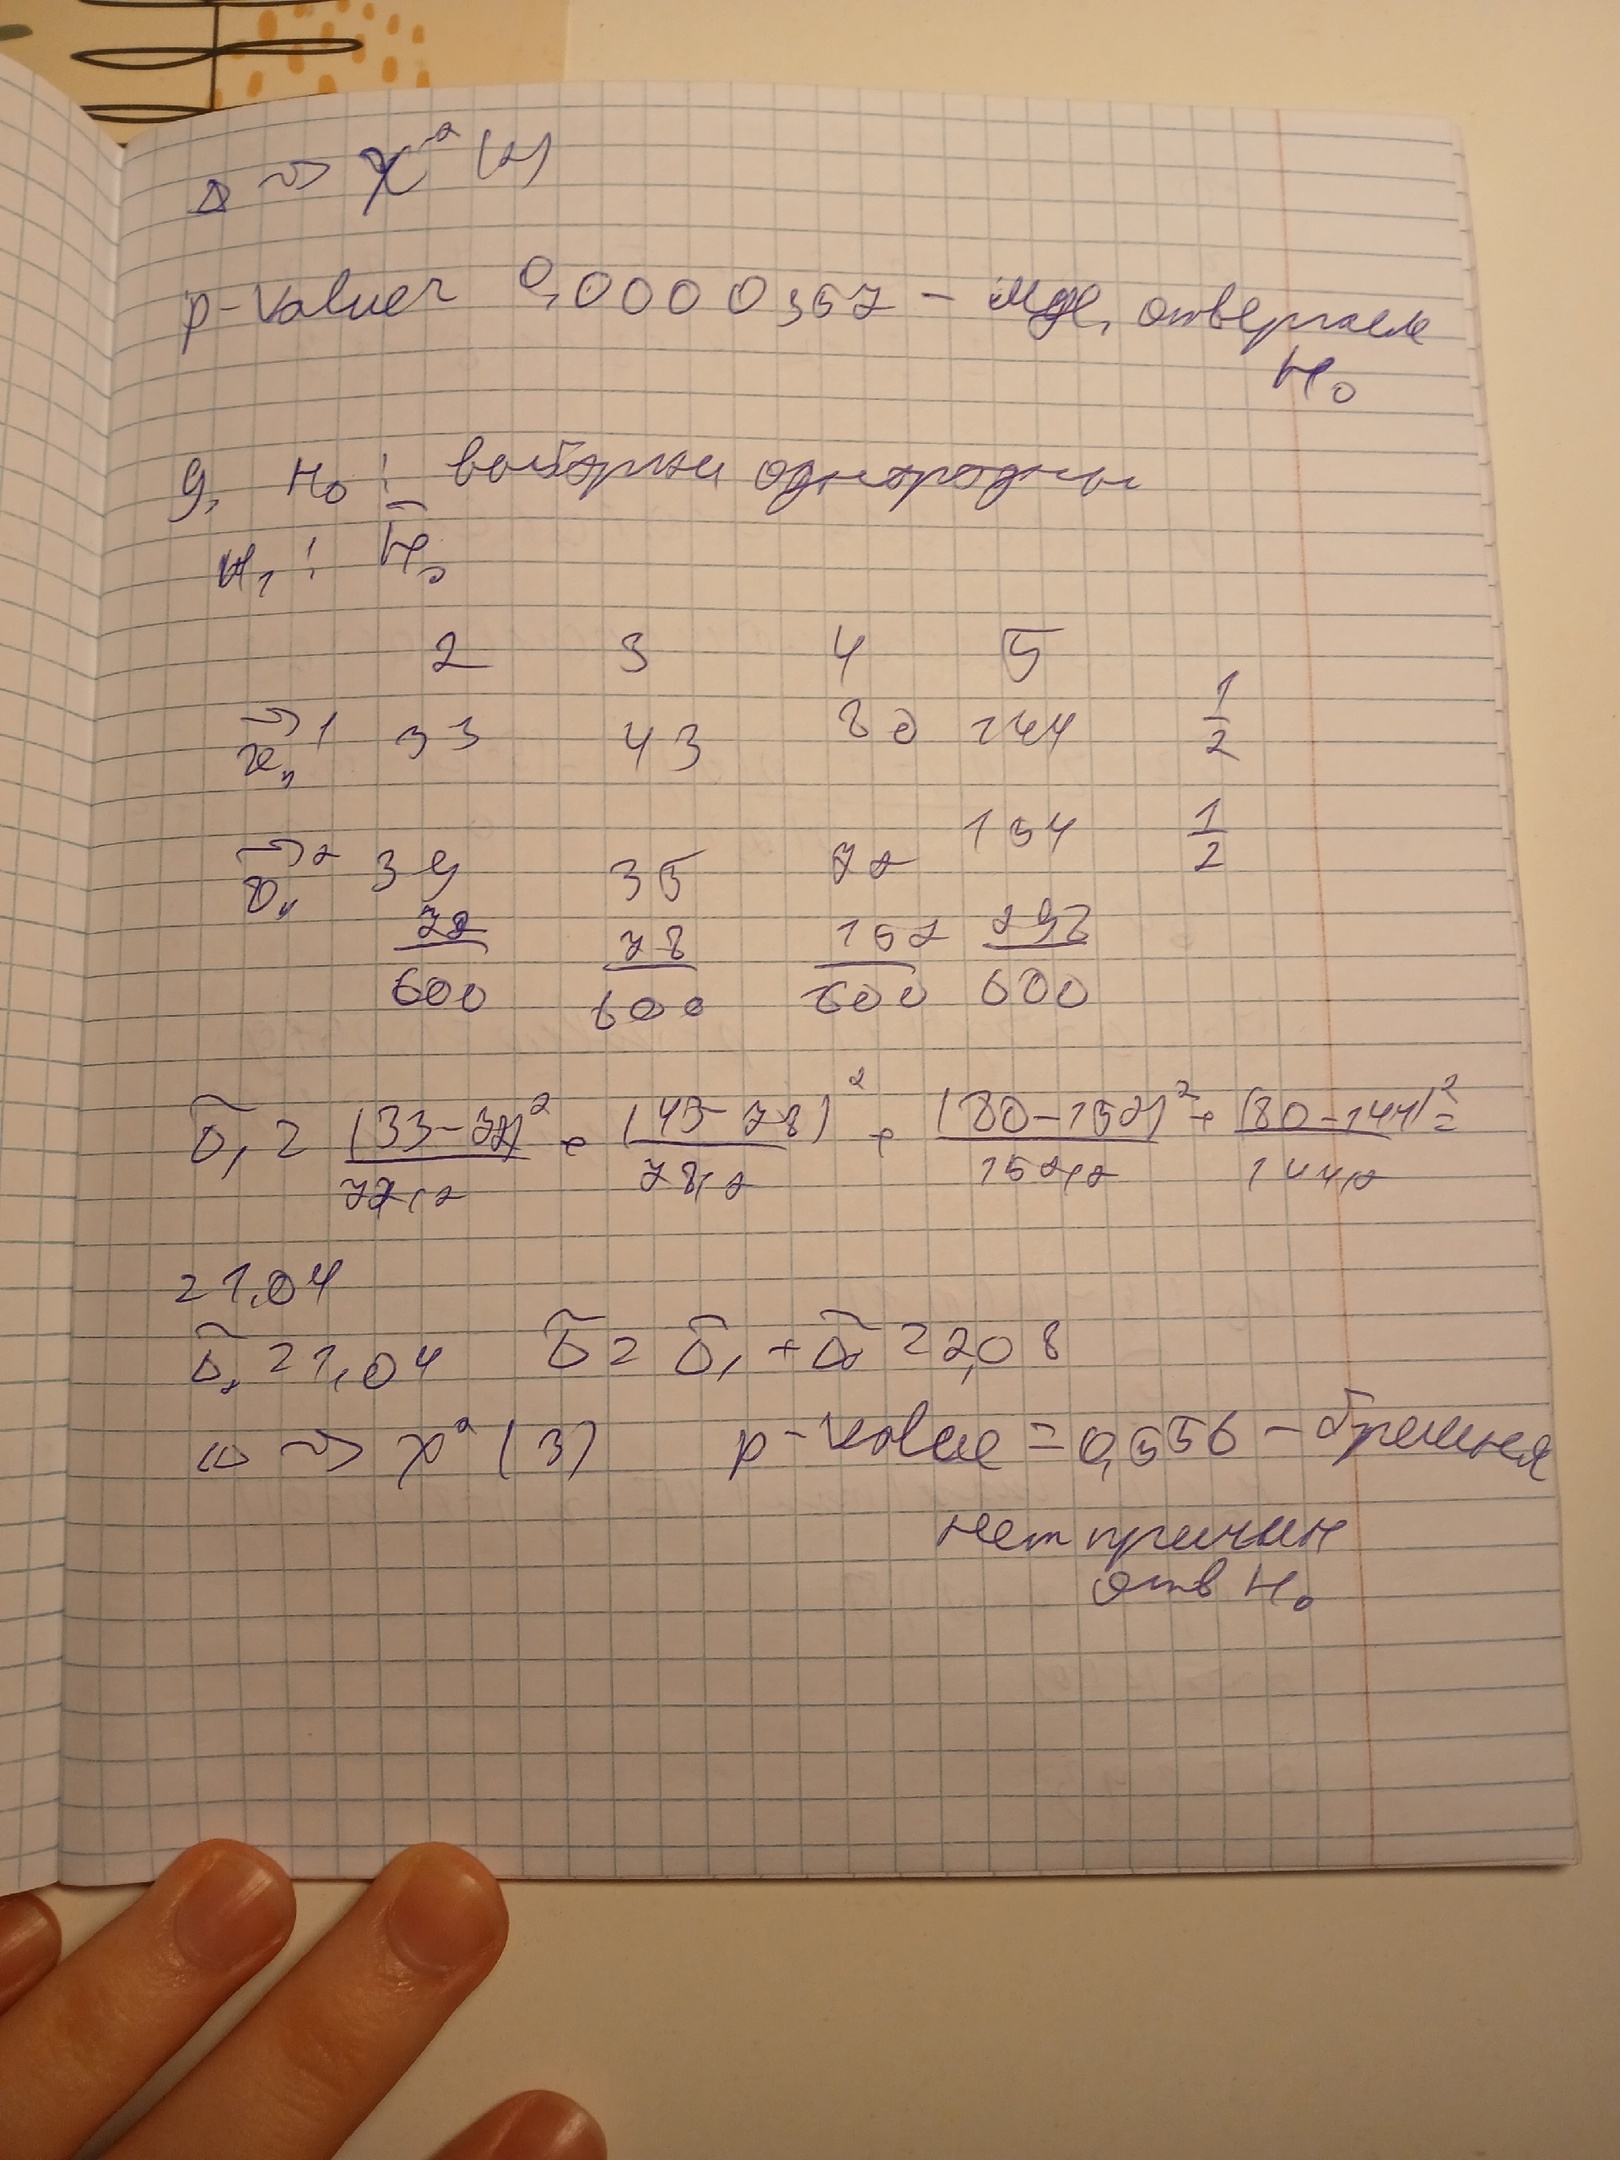 Δ ~> χ² (2)
p-value = 0,0000357 - отвергаем
H₀
9, H₀ : выборки однородны
H₁ : H̄₀
2 3 4 5
x⃗ₙ¹ 33 43 80 144 1/2
39 35 72 154 1/2
72/600 78/600 152/600 298/600
Δ̃₁ = (33-72)²/72·2 + (43-78)²/78·2 + (80-152)²/152·2 + (80-144)²/144·2 =
= 1,04
Δ̃₂ = 1,04 Δ̃ = Δ̃₁ + Δ̃₂ = 2,08
Δ ~> χ² (3) p-value = 0,556 -
нет причин
отв H₀